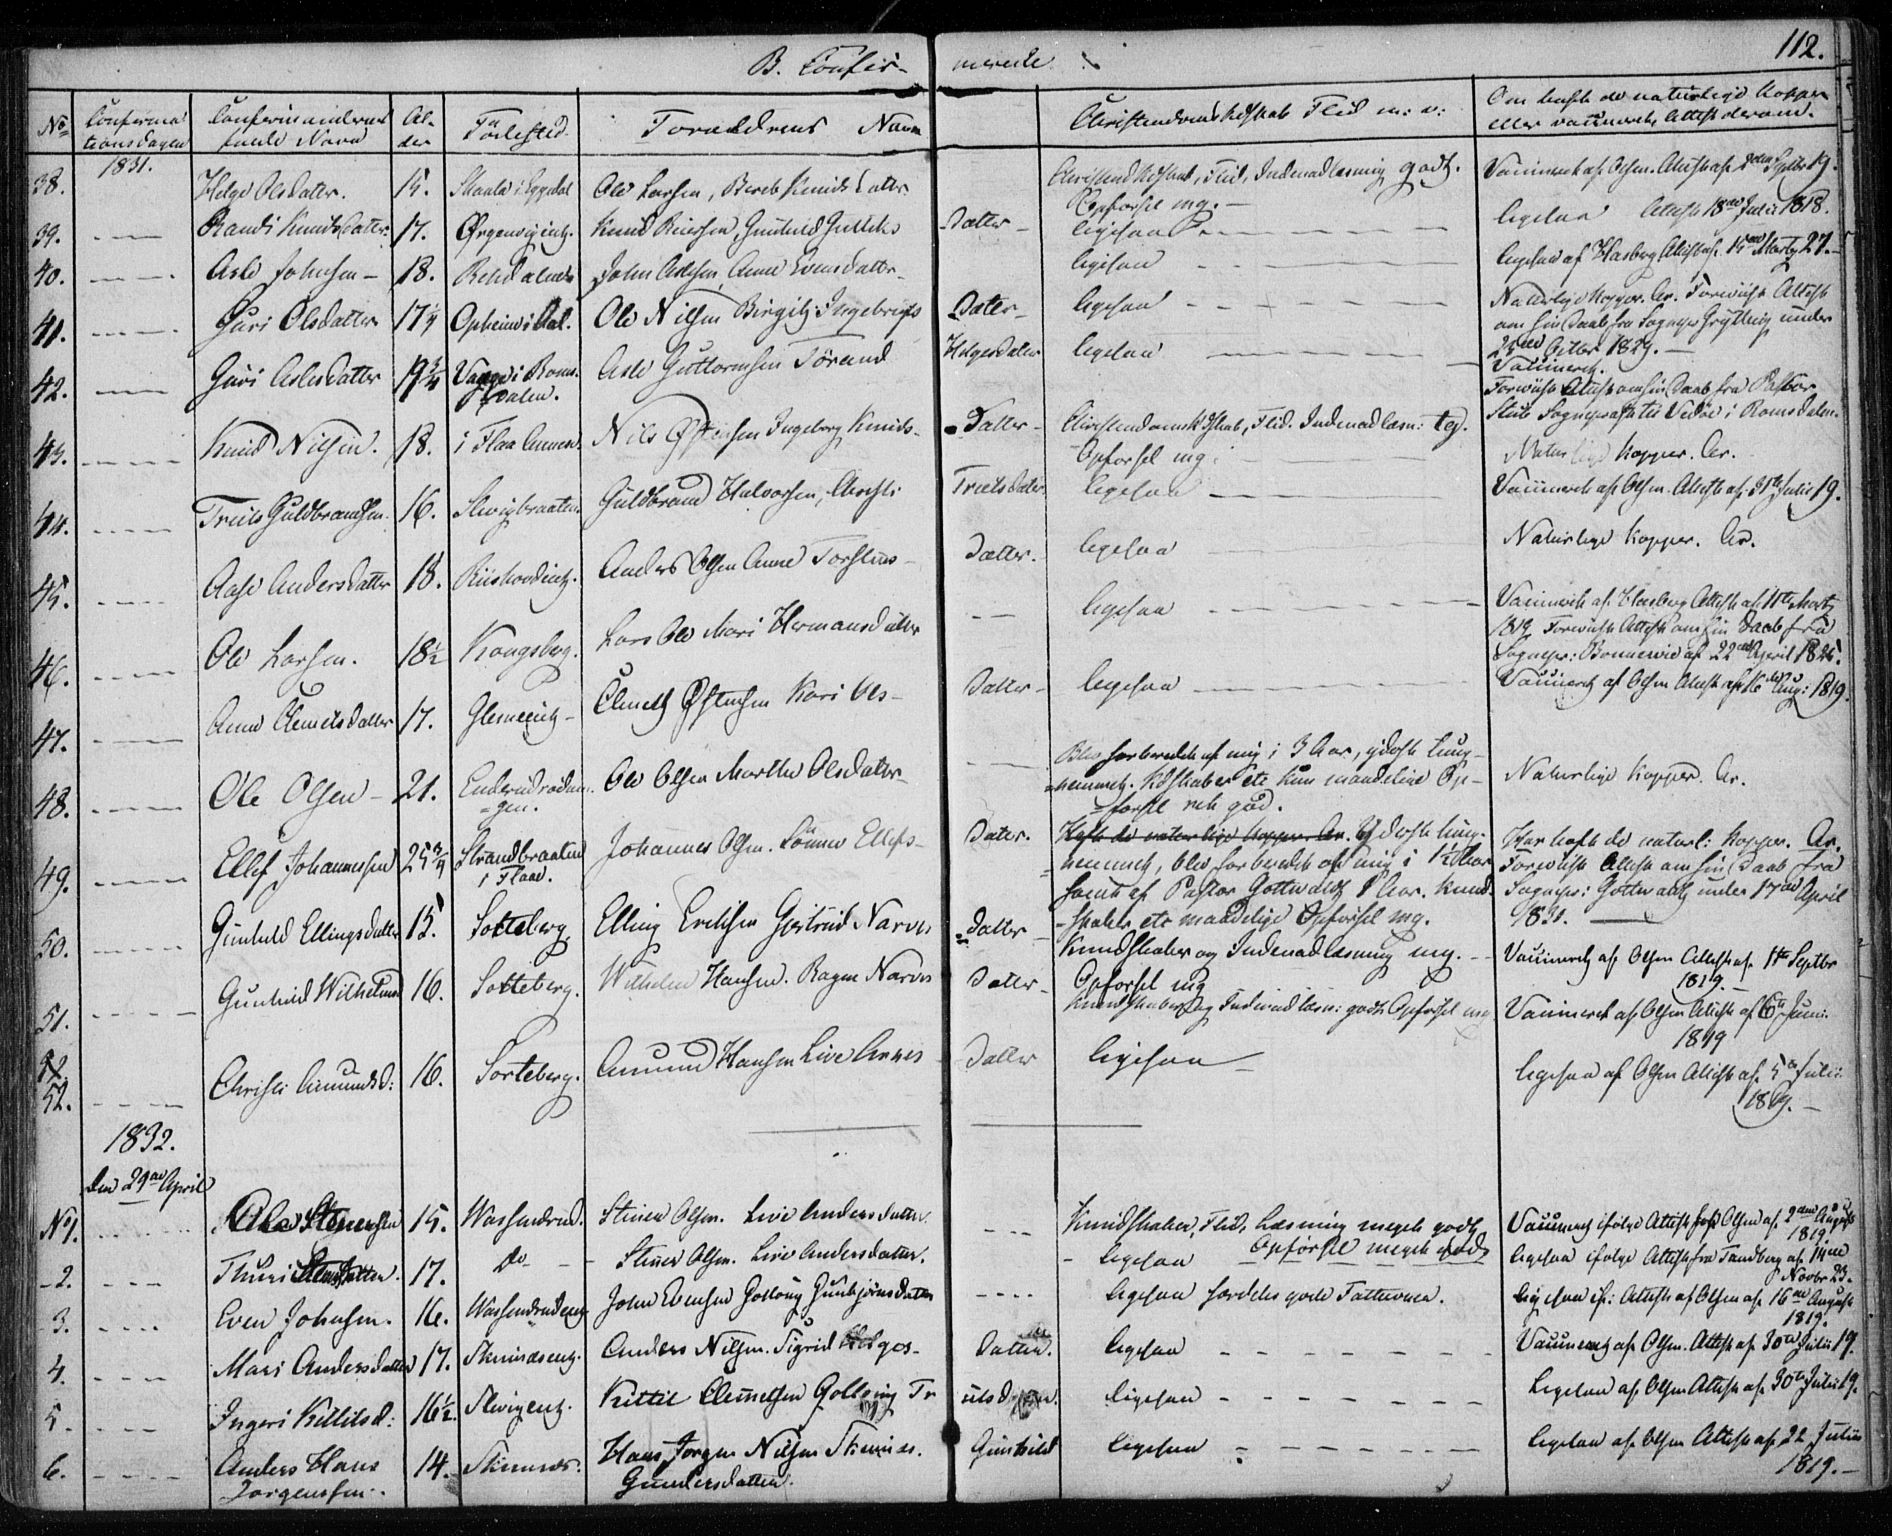 B. Confir- merede 112.
No Confirmationsdagen Confirmandernes fulde Navn Alder Fødested Forældrenes Navn Christendomskdskab Flid m: v: Om havt de naturlige Kopper eller vaccinerede Attest derom.
1831.
38. Helge Olsdatter. 15. Skaalo i Eggedal Ole Larsen, Berete Knuds Datter Christend. Kdskab, Flid, Indenadlæsning godt. Opførsel mg. Vaccineret af Olsen. Attest af Septbr 19.
39. Randi Knudsdatter 17. Ørgenvigent. Knud Reiersen, Gunhild Gulleks Datter ligesaa ligesaa Attest 18de Julii 1818.
40. Asle Johnsen 18. John Aslesen, Anne Evensdatter ligesaa ligesaa af Hasberg Attest af 15de Marty 27.
41. Guri Olsdatter 17 1/4 Opheim i Aal. Ole Nilsen Birgitz Ingebrigts Datter ligesaa Naturlige Kopper. Ar. Foreviist Attest
om sin Daab fra Sognepr Grytting under
25de Octbr 1829.
42. Guri Aslesdatter 19 3/4 Vagge i Romsdalen. Asle Guttormsen Tørand Helgesdatter ligesaa Vaccineret.
Foreviist Attest om sin Daab fra Pastor
Stub Sognepræst til Vedø i Romsdalen.
43. Knud Nilsen. 18. i Flaa Annex. Nils Østensen Ingeborg Knuds- Datter Christendomskdskab, Flid. Indenadlæsn: tg. Opførsel mg. Naturlige Kopper. Ar.
44. Truls Guldbrandsen. 16. Slevigbraaten. Guldbrand Halvorsen, Christi Trulsdatter ligesaa Vaccineret af Olsen. Attest af 31te Julii 19.
45. Aase Andersdatter 18. Anders Olsen Anne Torstens- Datter. ligesaa Naturlige Kopper. Ar.
46. Ole Larsen. 18 1/2 Kongsberg. Lars Ole Mari Hermansdatter ligesaa Vaccineret af Hasberg Attest af 11te Marty
1819 Foreviist Attest om sin Daab fra
Sognepr: Bonnevie af 22de April 1825.
47. Anne Clemetsdatter 17. Clemet Østensen Kari Ols- Datter ligesaa Vaccineret af Olsen Attest af 16de Aug: 1819.
48. Ole Olsen 21. Ole Olsen Marthe Olsdatter Blev forberedet af mig i 3 Aar, yderst tung-
nemmet. Kdskaber etc kun maadelige Op-
førsel ret god. Naturlige Kopper. Ar.
49. Ellef Johannessen 25 3/4 Strandbraaten i Flaa. Johannes Olsen. Lønnev Ellefs- Datter. Havt de naturlige Kopper Ar. Yderst tung-
nemmet, blev forberedet af mig i 1/2 Aar
samt af Pastor Gottwaldt 1 Aar. Kund-
skaber etc maadelige Opførsel mg. Har havt de naturl: Kopper. Ar.
Foreviist Attest om sin Daab fra
Sognepr: Gottwaldt under 17de April
1831.
50. Gunhild Ellingsdatter 15. Sorteberg. Elling Erichsen Gjertrud Narves Datter Kundskaber og Indenadlæsning mg. Opførsel mg Vaccineret af Olsen Attest af 11te Septbr 1819.
51. Gunhild Wilhelmsd 16. Sorteberg. Wilhelm Hansen. Ragne Narves Datter Kundskaber og Indenadlæsn: godt Opførsel mg Vaccineret af Olsen Attest af 6te Juni 1819
52. Christi Amundsd: 16. Sorteberg. Amund Hansen Live Arnes Datter ligesaa ligesaa af Olsen Attest af 5te Julii 1819.
1832.
den 29de April
No 1. Ole Steensen 15. Wassendrud. Steen Olsen. Live Andersdatter. Kundskaber, Flid, Læsning meget godt, Opførsel meget god Vaccineret ifølge Attest fra Olsen af 9de August 1819.
2. Thuri Steensdatter. 17. do Steen Olsen. Live Andersdatter. ligesaa ligesaa ifølge Attest fra Tandberg af 14de Novbr 23.
3. Even Johnsen. 16. Wassendrudenget John Evensen Golloug Gunbjørnsdatter ligesaa særdeles gode Fatteevner. ligesaa if: Attest af Olsen af 16de August 1819.
4. Mari Andersdatter 17. Skrindsengt. Anders Nilsen. Sigrid Helges- Datter. ligesaa Vaccineret af Olsen. Attest af 30te Julii 19.
5. Ingeri Kittilsd: 16 1/2. Slevigengt. Kittil Clemetsen Golloug Trulsdatter. ligesaa Ligesaa af Olsen Attest af 30te Julii 19.
6. Anders Hans Jørgensen. 14. Skinnes. Hans Jørgen Nilsen Skinnes. Gunhild Gundersdatter. ligesaa ligesaa af Olsen Attest af 22 Julii 1819.